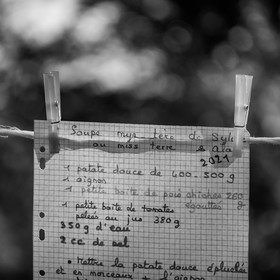 Soupe mystère de Syl
au miso terre & ala
2021
1 patate douce de 400-500 g
1 oignon
1 petite boite de pois chiches 260 g
égouttés
1 petite boite de tomates
pelées au jus 380g
350 g d'eau
2 cc de sel
• Mettre la patate douce épluchée
et en morceaux